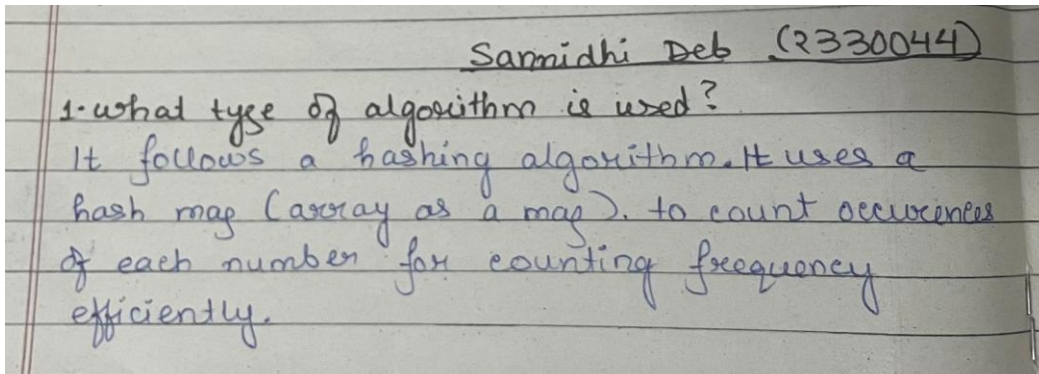 Sannidhi Deb (2330044)
1. What type of algorithm is used?
It follows a hashing algorithm. It uses a
hash map (array as a map). to count occurences
of each number for counting frequency
efficiently.